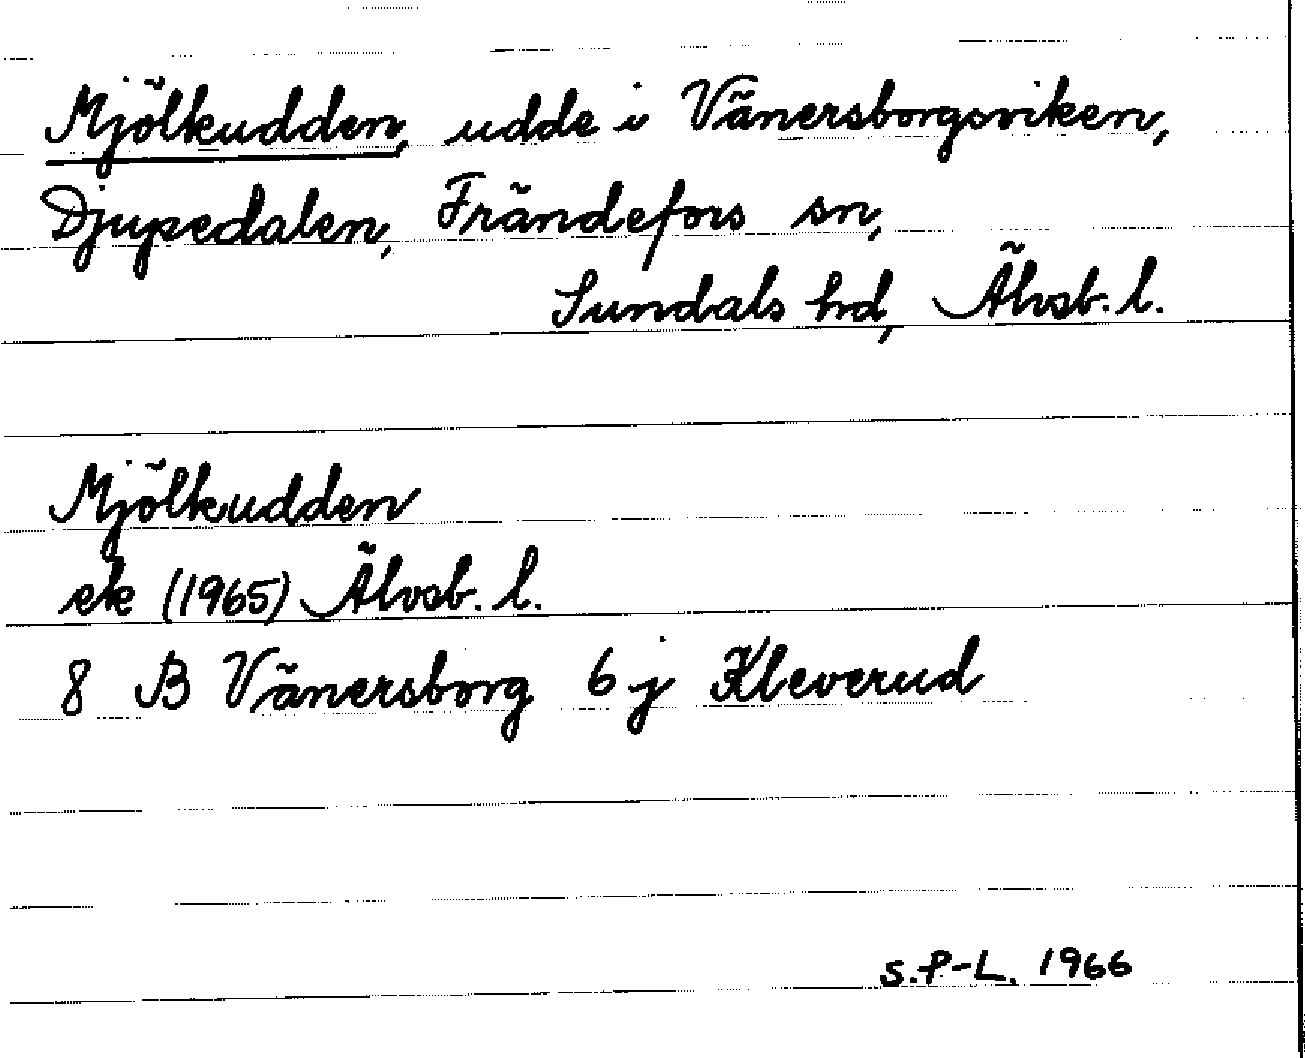 Mjölkudden, udde i Vänersborgsviken,
Djupedalen, Frändefors sn,
Sundals hd, Älvsb. l.
Mjölkudden
ek (1965) Älvsb. l.
8 B Vänersborg 6 j Kleverud
S.P-L. 1966